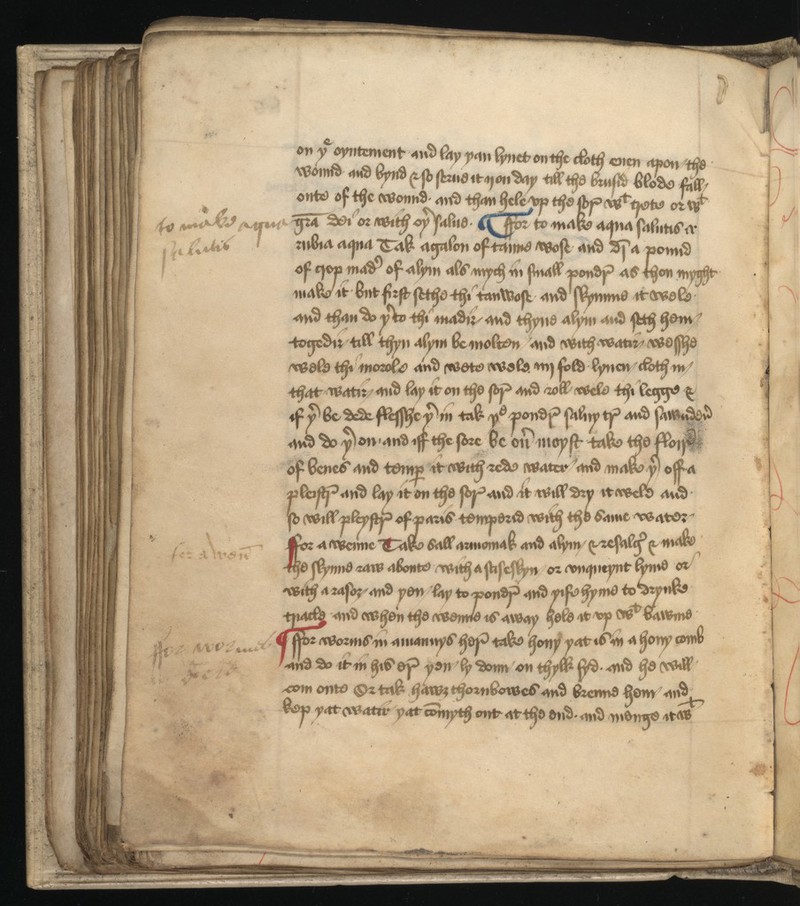 on yͬ oyntement and lay yan lynet on the cloth euen apon the
wound and bynd & so serue it yon day till the brusid blode fall
onte of the wound and than hele vp the sorͬ wᵗ trete or wᵗ
to make aqua
salutis
gra dei or with oyͬ salue. ¶ ffor to make aqua salutis &
rubia aqua Tak a galon of tanne wose and di a pound
of crop madͬ of alym als mych in small poudrͬ as thou myght
make it but first sethe thi tanwose and skymme it wele
and than do yͬto thi madir and thyne alym and seth hem
togedir till thyn alym be molten and with watir wesshe
wele thi morole and wete wele iiii fold lynen cloth in
that watir and lay it on the sorͬ and roll wele thi legge &
if yͬ be dede flesshe yͬ in tak yᵉ poudrͬ salny trͬ and
and do yͬ on and iff the sore be ouͬ moyst take the flour
of benes and temp it with rede water and make yͬ off a
pleistrͬ and lay it on the sorͬ and it will dry it wele and
so will pleystrͬ of paris temperid with the same water
for a wenn
ffor a wenne Take sall armoniak and alym & resalgͬ & make
the skynne raw aboute with a siseslyn or vnqueynt lyme or
with a rasor and yen lay to poudrͬ and yife hyme to drynke
triacle and when the wenne is away hele it vp wᵗ bawme
ffor worms
¶ ffor worms in a mannys herͬ take hony yat is in a hony comb
and do it in his erͬ yen ly doun on thylk syd and he will
com onte Or tak hawz thornbowes and brenne hem and
kep yat watir yat comyth out at the end and menge it wᵗ